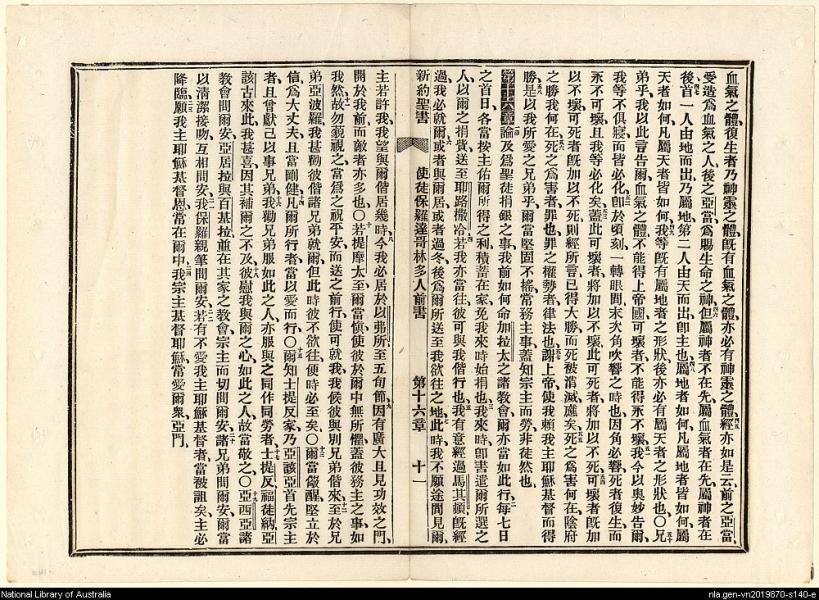 血氣之體、復生者乃神靈之體、既有血氣之體、亦必有神靈之體、經亦如是云、前之亞當
受造爲血氣之人、後之亞當爲賜生命之神、但屬神者不在先、屬血氣者在先、屬神者在
後、首一人由地而出、乃屬地、第二人由天而出、卽主也、屬地者如何、凡屬地者皆如何、屬
天者如何、凡屬天者皆如何、我等既有屬地者之形狀、後亦必有屬天者之形狀也、〇兄
弟乎、我以此言告爾、血氣之體不能得上帝國、可壞者不能得永不壞、我今以奧妙告爾、
我等不俱寢、而皆必化、卽於頃刻一轉眼間、末次角吹響之時也、因角必響、死者復生而
永不可壞、且我等必化矣、蓋此可壞者將加以不壞、此可死者將加以不死、可壞者既加
以不可壞、可死者既加以不死、則經所言已得大勝而死被消滅、應矣、死之爲害何在、陰府
之勝我何在、死之爲害者罪也、罪之權勢者律法也、謝上帝、使我賴我主耶穌基督而得
勝、是以我所愛之兄弟乎、爾當堅固不搖、常務主事、蓋知宗主而勞、非徒然也、
第十六章 論及爲聖徒捐銀之事、我前如何命加拉太之諸敎會、爾亦當如此行、每七日
之首日、各當按主佑爾所得之利、積蓄在家、免我來時始捐也、我來時、卽書遣爾所選之
人、以爾之捐貲送至耶路撒冷、若我亦當往、彼可與我偕行也、我有意經過馬其頓、既經
過我必就爾、或者與爾居、或者過冬、後爲爾所送至我欲往之地、此時我不願途間見爾、
新約聖書 使徒保羅達哥林多人前書 第十六章 十一
主若許我、我望與爾偕居幾時、今我必居於以弗所、至五旬節、因有廣大且見功效之門、
開於我前、而敵者亦多也、〇若提摩太至、爾當愼使彼於爾中無所懼、蓋彼務主之事如
我然、故勿藐視之、當爲之祝平安而送之前行、使可就我、我候彼與別兄弟偕來、至於兄
弟亞波羅、我甚勸彼偕諸兄弟就爾、但此時彼不欲往、便時必至矣、〇爾當儆醒、堅立於
信、爲大丈夫、且當剛健、凡爾所行者、當以愛而行、〇爾知士提反家、乃亞該亞首先宗主
者、且曾獻己以事兄弟、我勸兄弟服如此之人、亦服與之同作同勞者、士提反、福徒納、亞
該古來此、我甚喜、因其補爾之不及、彼慰我與爾之心、如此之人、故當敬之、〇亞西亞諸
敎會問爾安、亞居拉與百基拉、並在其家之敎會、宗主而切問爾安、諸兄弟問爾安、爾當
以清潔接吻、互相問安、我保羅親筆問爾安、若有不愛我主耶穌基督者、當被詛矣、主必
降臨、願我主耶穌基督恩、常在爾中、我宗主基督耶穌、當愛爾衆、亞門、
National Library of Australia
nla.gen-vn2019870-s140-e